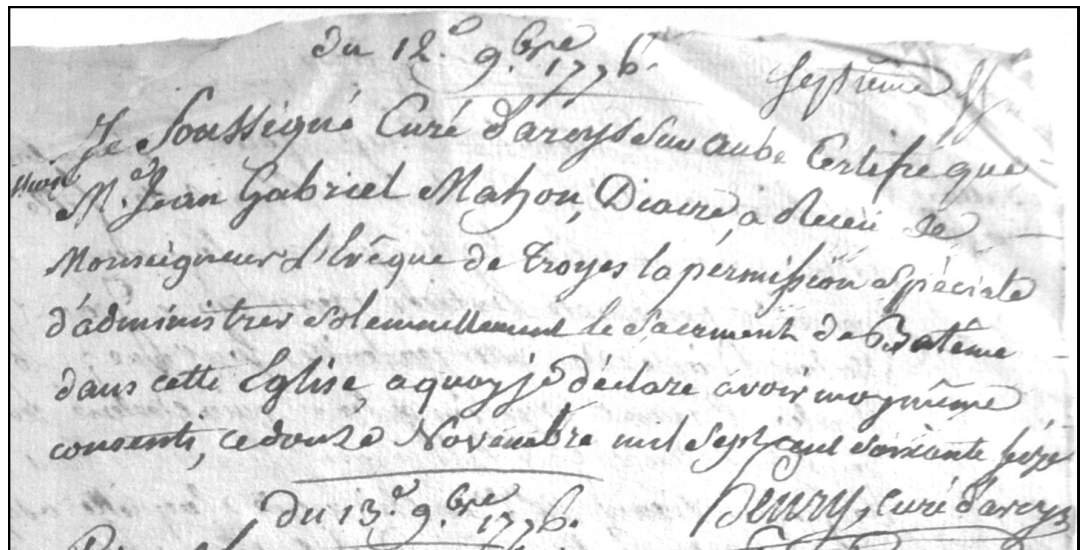 du 12.e 9.bre 1776.
septième ff
Je Soussigné Curé d'arcys sur aube Certifie que
M.e Jean Gabriel Mahon, Diacre, a Receu de
Monseigneur l'Evêque de troyes la permission spéciale
d'administrer solemnellement le sacrement de Batême
dans cette Eglise, a quoy je déclare avoir moy même
consenti, ce douze Novembre mil sept cent soixante seize
henry, Curé d'arcys
du 13.e 9.bre 1776.